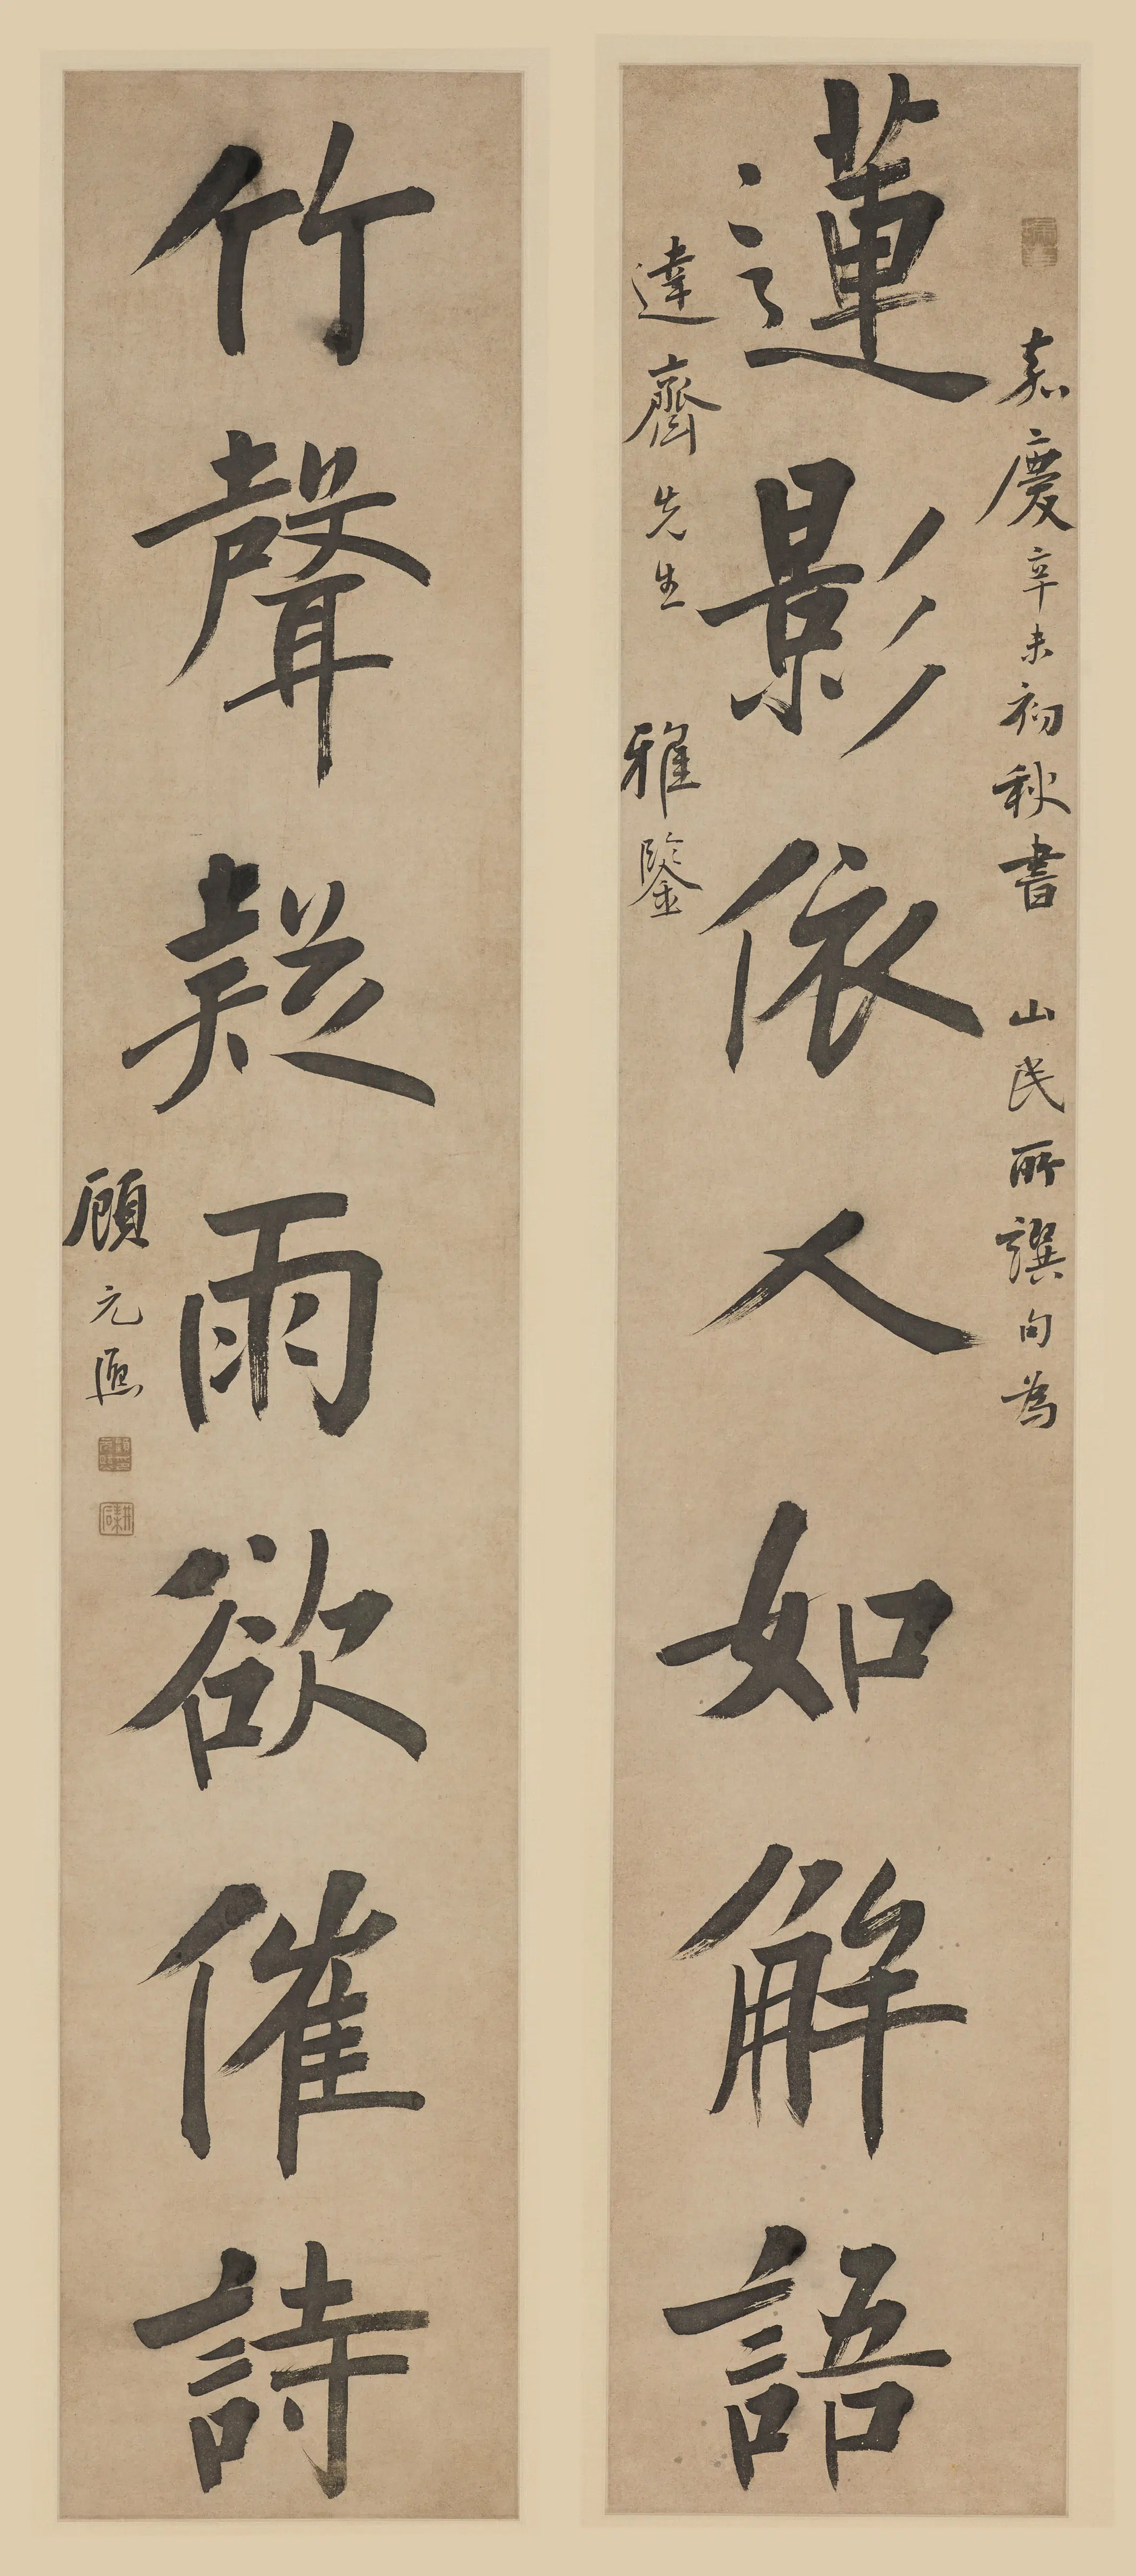 嘉慶辛未初秋書 山民所譔句為
蓮影依人如解語
達齋先生 雅鑒
竹聲疑雨欲催詩
顧元熙